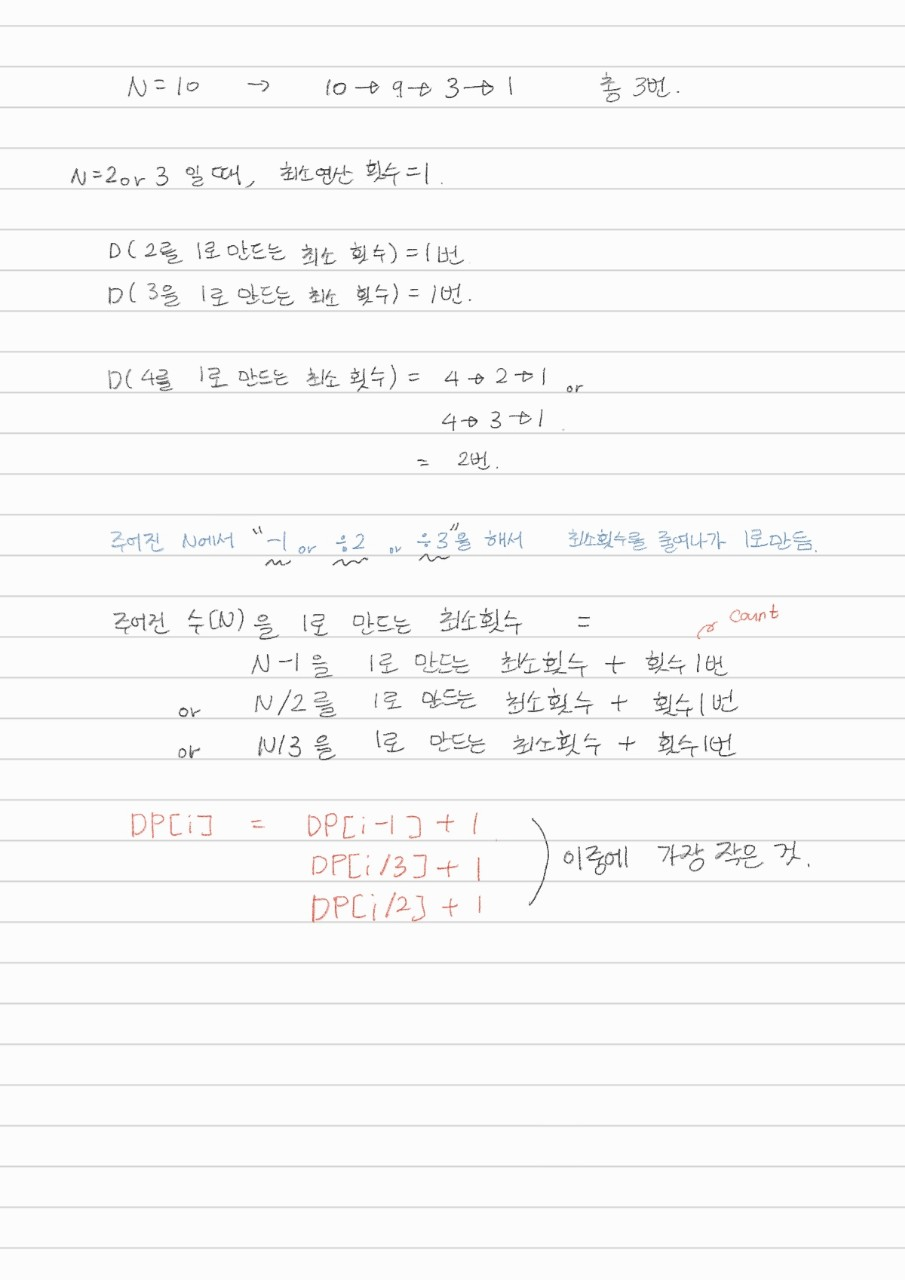 N=10 → 10→9→3→1 총 3번.
N=2 or 3 일때, 최소연산 횟수=1.
D(2를 1로 만드는 최소 횟수)=1번
D(3을 1로 만드는 최소 횟수)=1번.
D(4를 1로 만드는 최소 횟수)= 4→2→1 or
4→3→1.
= 2번.
주어진 N에서 "-1 or ÷2 or ÷3"을 해서 최소횟수를 줄여나가 1로만듦.
주어진 수(N)을 1로 만드는 최소횟수 = count
N-1을 1로 만드는 최소횟수 + 횟수1번
or N/2를 1로 만드는 최소횟수 + 횟수1번
or N/3을 1로 만드는 최소횟수 + 횟수1번
DP[i] = DP[i-1]+1
DP[i/3]+1 이중에 가장 작은 것.
DP[i/2]+1